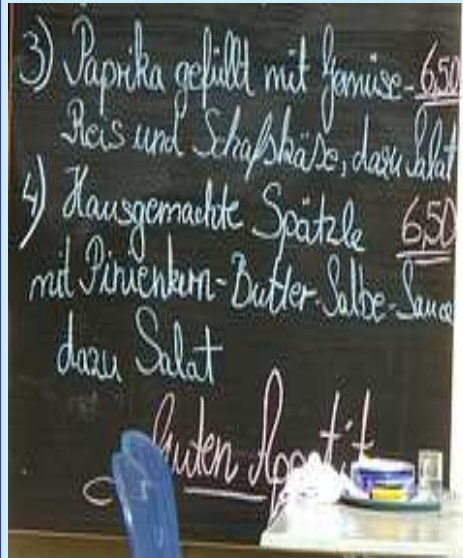 3) Paprika gefüllt mit Gemüse- 6,50
Reis und Schafskäse, dazu Salat
4) Hausgemachte Spätzle 6,50
mit Pinienkern-Butter-Salbe-Sauce
dazu Salat
Guten Appetit